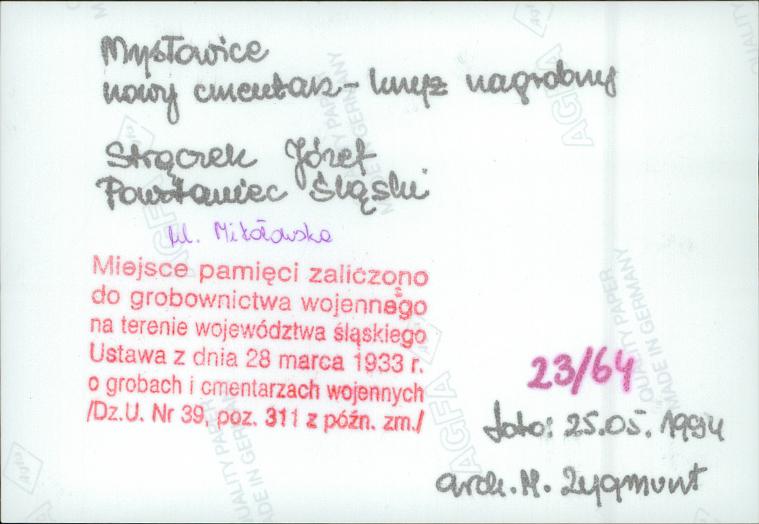 Mysłowice
nowy cmentarz - krzyż nagrobny
Strączek Józef
Powstaniec Śląski
ul. Mikołowska
Miejsce pamięci zaliczono
do grobownictwa wojennego
na terenie województwa śląskiego
Ustawa z dnia 28 marca 1933 r.
o grobach i cmentarzach wojennych
/Dz.U. Nr 39, poz. 311 z późn. zm./
23/64
foto: 25.05.1994
arch. M. Zygmunt
AGFA
QUALITY PAPER
MADE IN GERMANY